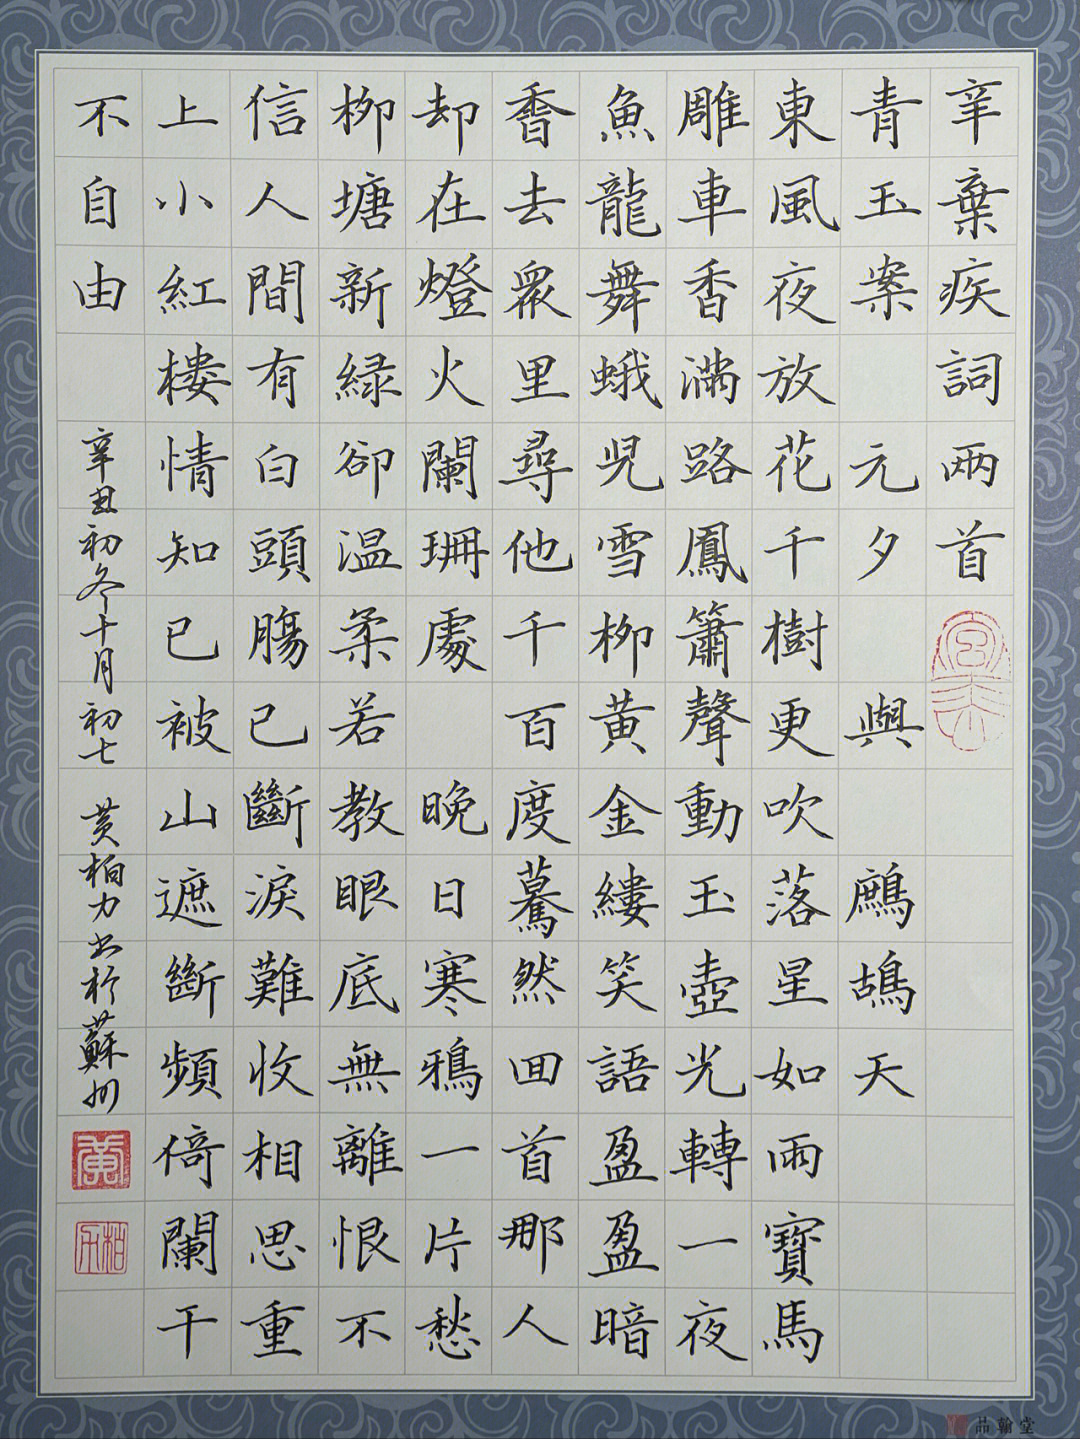 辛棄疾詞兩首
青玉案 元夕 與 鷓鴣天
東風夜放花千樹更吹落星如雨寶馬
雕車香滿路鳳簫聲動玉壺光轉一夜
魚龍舞蛾兒雪柳黃金縷笑語盈盈暗
香去眾里尋他千百度驀然回首那人
却在燈火闌珊處 晚日寒鴉一片愁
柳塘新緑卻温柔若教眼底無離恨不
信人間有白頭腸已斷淚難收相思重
上小紅樓情知已被山遮斷頻倚闌干
不自由
辛丑初冬十月初七 黃柏力書於蘇州
黃
品翰堂